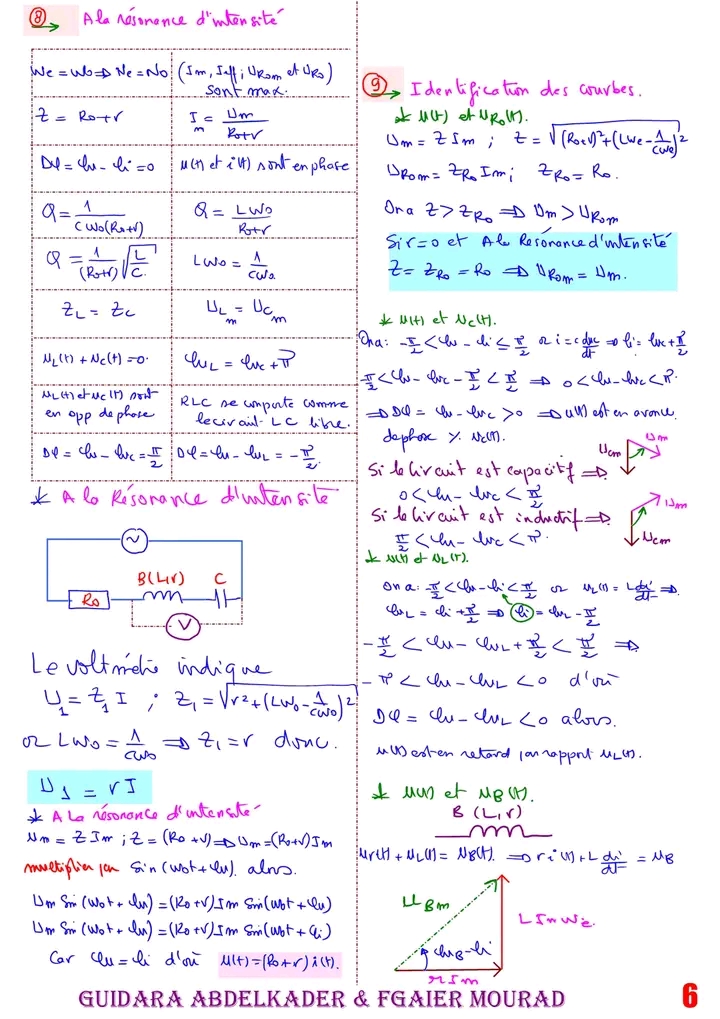 ⑧ → A la résonance d'intensité
We = Wo ⇒ Ne = No | (Im, Ieff, URom et URo) sont max.
Z = Ro+r | Im = Um/(Ro+r)
Δφ = φu - φi = 0 | u(t) et i(t) sont en phase
Q = 1/(C Wo(Ro+r)) | Q = LWo/(Ro+r)
Q = 1/(Ro+r) √(L/C) | LWo = 1/(CWo)
ZL = ZC | ULm = UCm
uL(t) + uC(t) = 0. | φuL = φuC + π
uL(t) et uC(t) sont en opp de phase | RLC se comporte comme le circuit LC libre.
Δφ = φu - φuC = π/2 | Δφ = φu - φuL = -π/2.
↓ A la Résonance d'intensité
B(L,r) C
Ro
V
Le voltmètre indique
U1 = Z1 I ; Z1 = √(r² + (LWo - 1/(CWo))²)
or LWo = 1/(CWo) ⇒ Z1 = r donc.
U1 = rI
↓ A La résonance d'intensité
Um = Z Im ; Z = (Ro + r) ⇒ Um = (Ro+r) Im
multiplier par Sin(wot + φu). alors.
Um Sin(wot + φu) = (Ro+r) Im Sin(wot + φu)
Um Sin(wot + φu) = (Ro+r) Im Sin(wot + φi)
Car φu = φi d'où u(t) = (Ro+r) i(t).
⑨ → Identification des courbes.
↓ u(t) et uRo(t).
Um = Z Im ; Z = √((Ro+r)² + (LWe - 1/(CWe))²)
URom = ZRo Im ; ZRo = Ro.
On a Z > ZRo ⇒ Um > URom
Si r = 0 et A la Résonance d'intensité
Z = ZRo = Ro ⇒ URom = Um.
↓ u(t) et uC(t).
On a : -π/2 < φu - φi ≤ π/2 or i = C duC/dt ⇒ φi = φuC + π/2
-π/2 < φu - φuC - π/2 < π/2 ⇒ 0 < φu - φuC < π.
⇒ Δφ = φu - φuC > 0 ⇒ u(t) est en avance
de phase % uC(t).
UCm Um
Si le Circuit est capacitif ⇒
0 < φu - φuC < π/2
Si le Circuit est inductif ⇒
Um
UCm
π/2 < φu - φuC < π.
↓ u(t) et uL(t).
on a : -π/2 < φu - φi < π/2 or uL(t) = L di/dt ⇒
φuL = φi + π/2 ⇒ φi = φuL - π/2
-π/2 < φu - φuL + π/2 < π/2 ⇒
-π < φu - φuL < 0 d'où
Δφ = φu - φuL < 0 alors.
u(t) est en retard par rapport uL(t).
↓ u(t) et uB(t).
B (L, r)
ur(t) + uL(t) = uB(t). ⇒ r i(t) + L di/dt = uB
UBm
L Im We
φuB - φi
r Im
GUIDARA ABDELKADER & FGAIER MOURAD
6